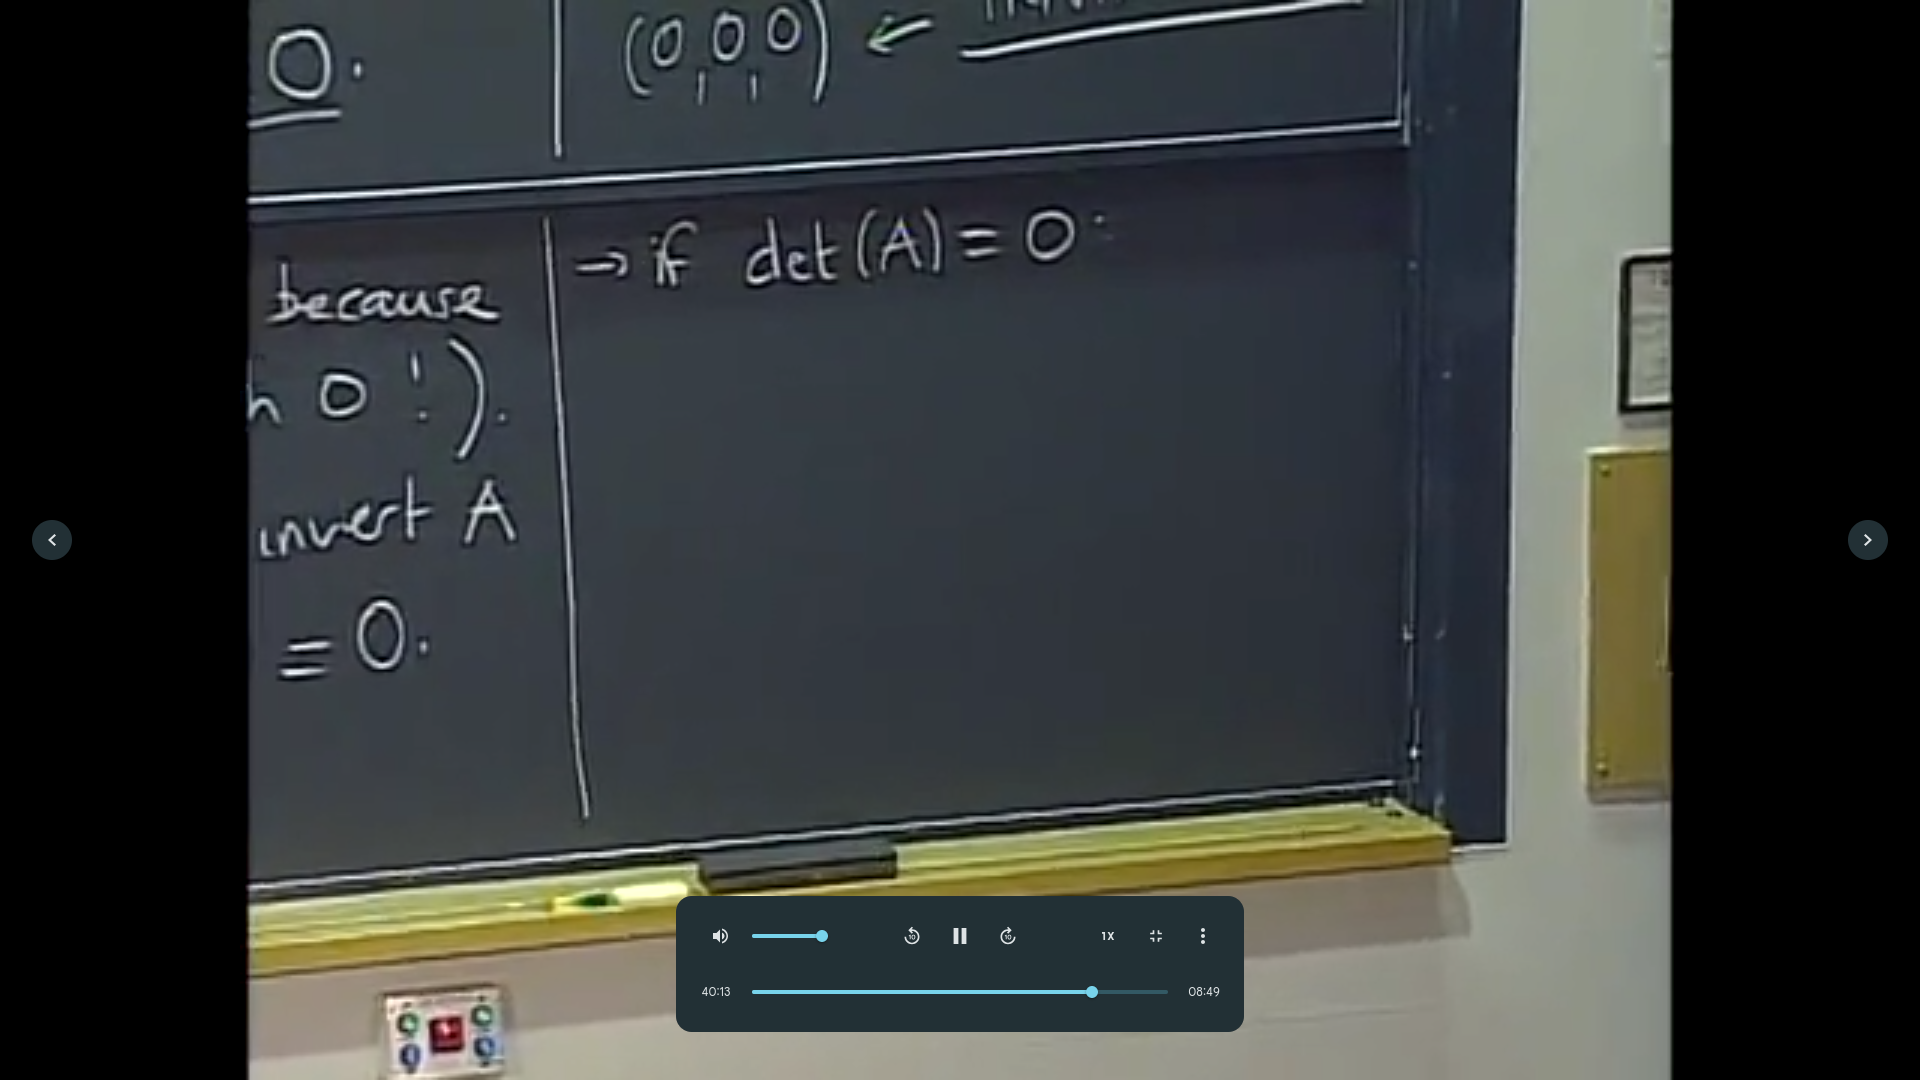 0.
(0,0,0) ←
because
h 0 !).
invert A
= 0.
→ if det(A) = 0:
10
10
1X
40:13
08:49